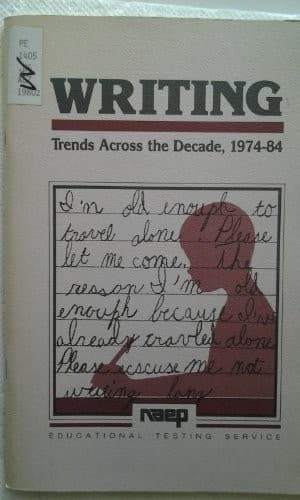 PE
1405
19802
WRITING
Trends Across the Decade, 1974-84
I'm old enough to
travel alone. Please
let me come. The
reason I'm old
enough because I've
already travled alone
Please escuse me not
writing long
naep
EDUCATIONAL TESTING SERVICE